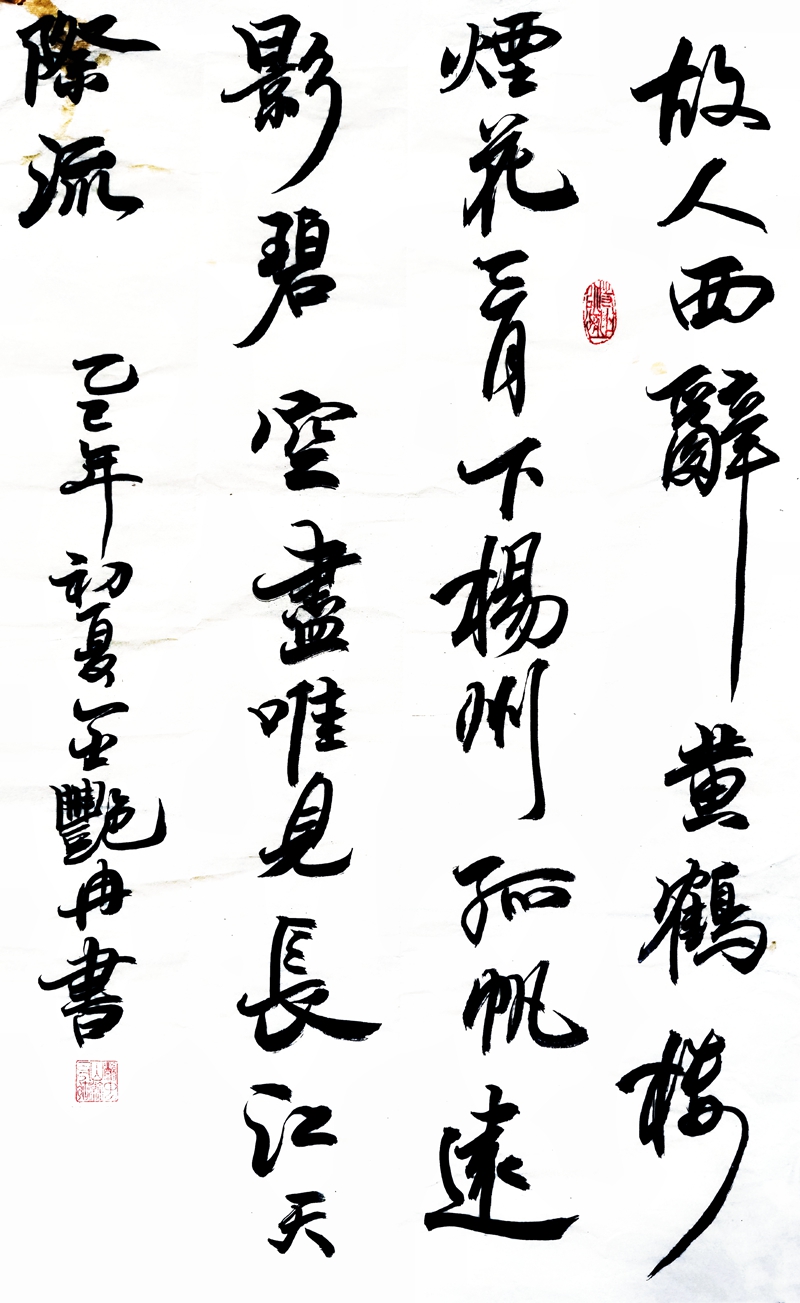 故人西辭黄鶴楼
煙花三月下楊州孤帆遠
影碧空盡唯見長江天
際流 乙巳年初夏金艷冉書